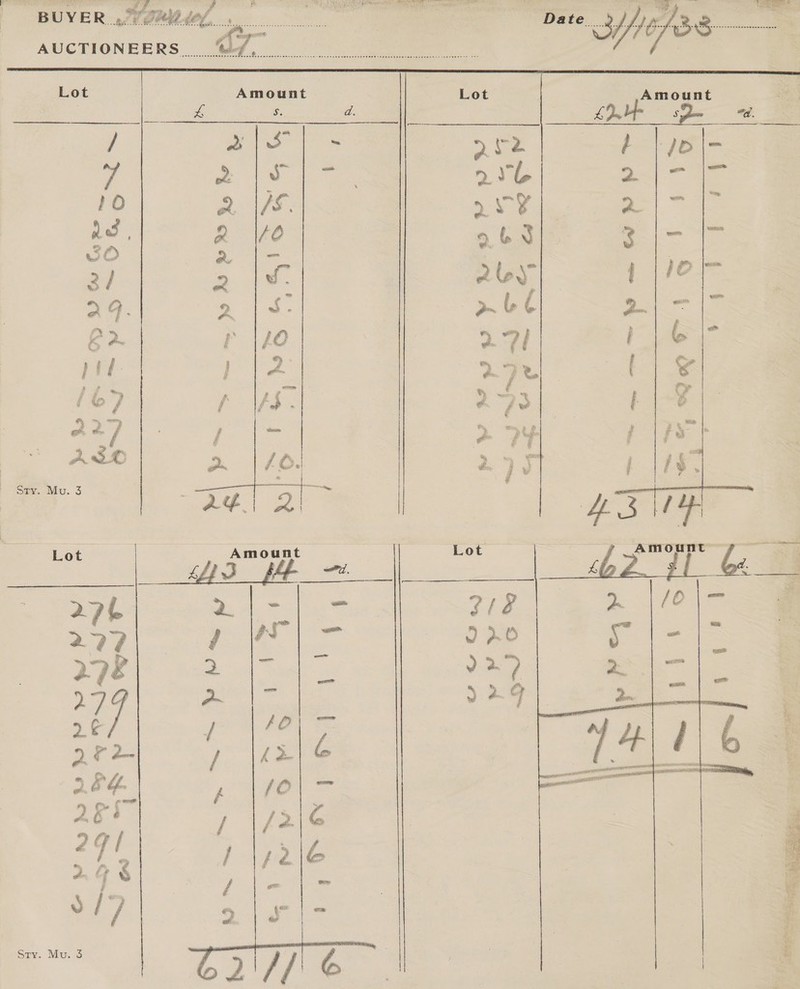 BUYER
Date 31/10/38
AUCTIONEERS
Lot Amount Lot Amount
£ s. d. £24 s2 - d.
1 2 5 - 252 1 10 -
7 2 5 - 256 2 - -
10 2 15. 258 2 - -
23. 2 10 263 3 - -
30 2 - 265 1 10 -
31 2 5. 266 2 - -
29. 2 5. 271 1 6 -
82 1 10 272 1 8
111 1 2 273 1 8
167 1 15. 274 1 15 -
227 1 - 275 1 15.
230 2 10.
Sty. Mu. 3 24. 2 43 14
Lot Amount Lot Amount
£43 14 - d. £62 11 6d.
276 2 - - 318 2 10 -
277 1 15 - 320 5 - -
278 2 - - 327 2 - -
279 2 - - 329 2 - -
281 1 10 - 74 1 6
282 1 12 6
284 1 10 -
285 1 12 6
291 1 12 6
293 1 - -
317 2 5 -
Sty. Mu. 3 62 11 6